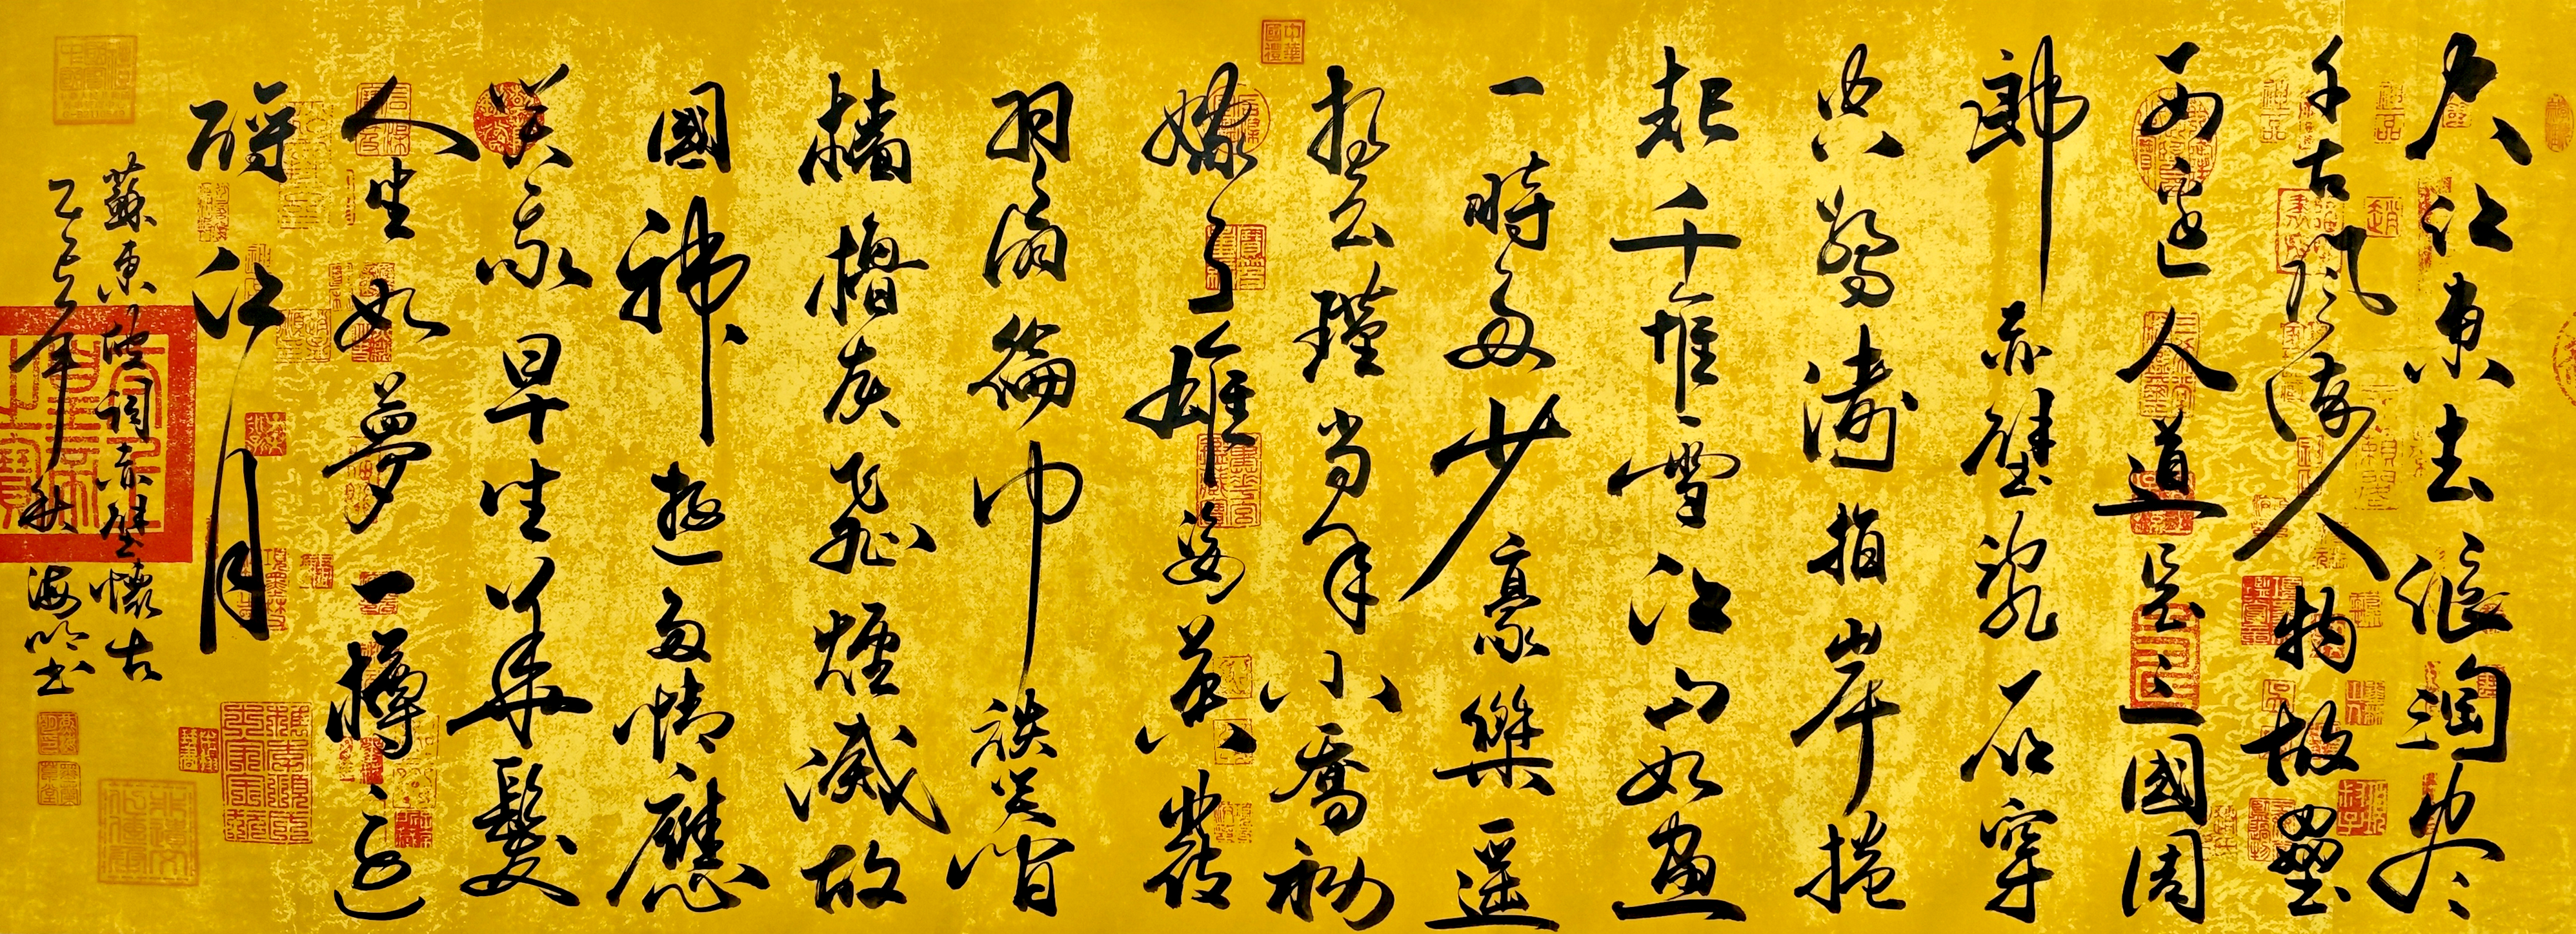 大江東去浪淘尽
千古風流人物故壘
西邊人道是三國周
郎赤壁亂石穿
空驚濤拍岸捲
起千堆雪江山如畫
一時多少豪傑遥
想公瑾当年小喬初
嫁了雄姿英發
羽扇綸巾談笑間
檣櫓灰飛煙滅故
國神遊多情應
笑我早生華髮
人生如夢一樽還
酹江月
蘇東坡詞赤壁懷古
乙巳年秋海书